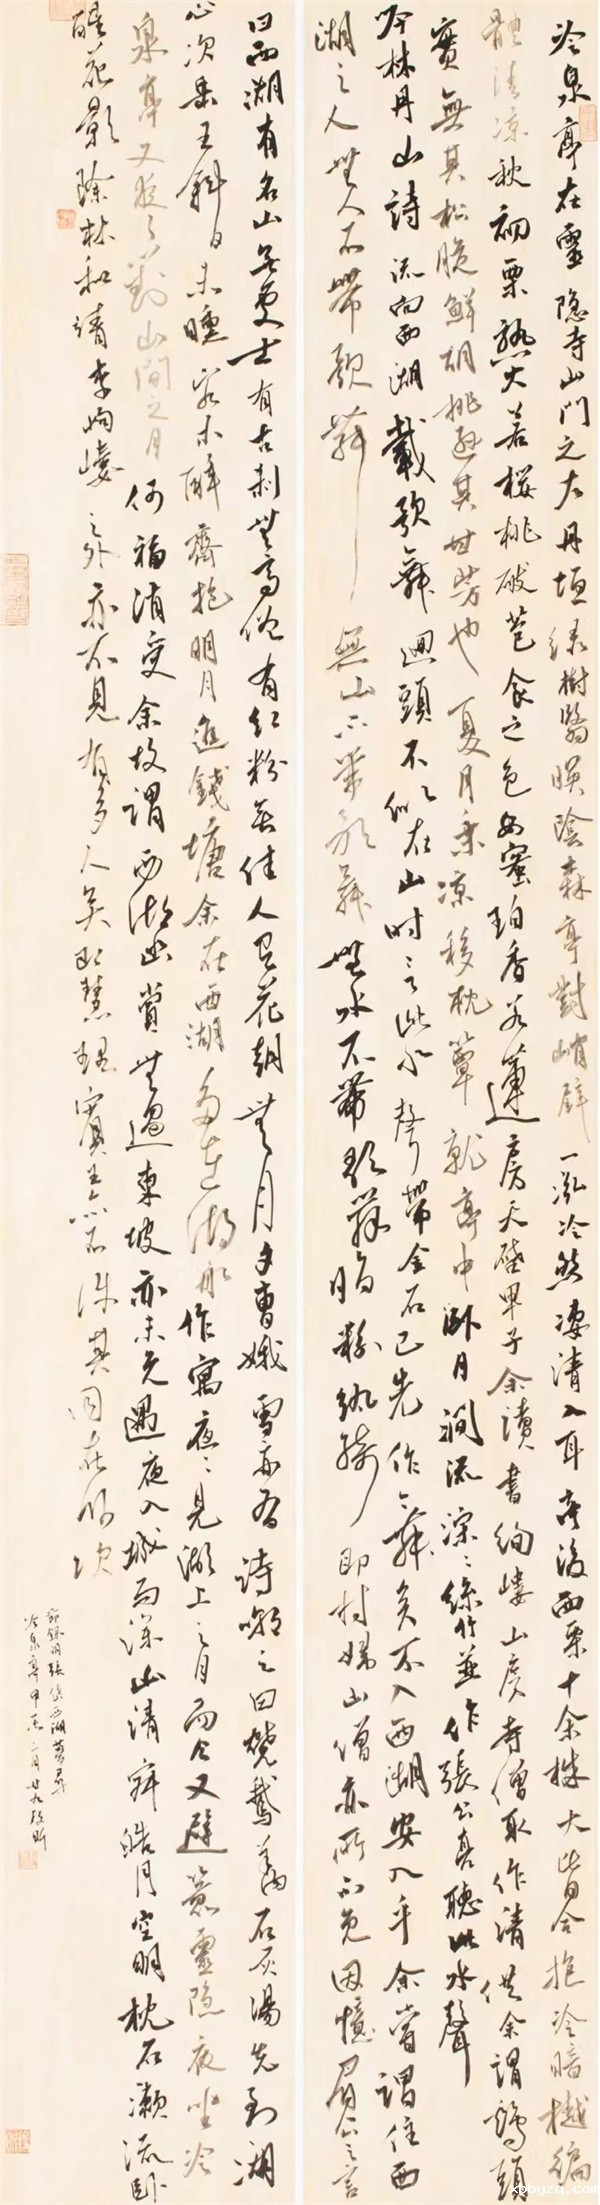 冷泉亭在靈隐寺山門之左丹垣绿樹翳暎陰森亭對峭壁一泓冷然凄清入耳亭後西栗十余株大皆合抱冷暗樾徧
體清凉秋初栗熟大若桜桃破苞食之色如蜜珀香若蓮房天啓甲子余讀書岣嶁山房寺僧取作清供余謂鷄頭
實無其松脆鮮胡桃遜其甘芳也夏月乘凉移枕簟就亭中卧月澗流淙々絲竹並作張公亮聽此水聲
吟林丹山詩流向西湖載歌舞迴頭不似在山時言此水聲帶金石已先作歌舞矣不入西湖安入乎余嘗謂住西
湖之人無人不帶歌舞無山不帶歌舞無水不帶歌舞脂粉紈綺即村婦山僧亦所不免因憶眉公之言
曰西湖有名山無處士有古刹無高僧有紅粉無佳人有花朝無月夕曹娥雪亦有詩嘲之曰燒鵝羊肉石灰湯先到湖
心次岳王斜日未曛客未醉齊抛明月進錢塘余在西湖多在湖船作寓夜々見湖上之月而今又避囂靈隐夜坐冷
泉亭又夜々對山間之月何福消受余故謂西湖幽賞無過東坡亦未免遇夜入城而深山清寂皓月空明枕石漱流卧
醒花影除林和靖李岣嶁之外亦不見有多人矣即慧理賓王亦不許其同在卧次
節録明張岱西湖夢尋
冷泉亭甲辰二月廿九